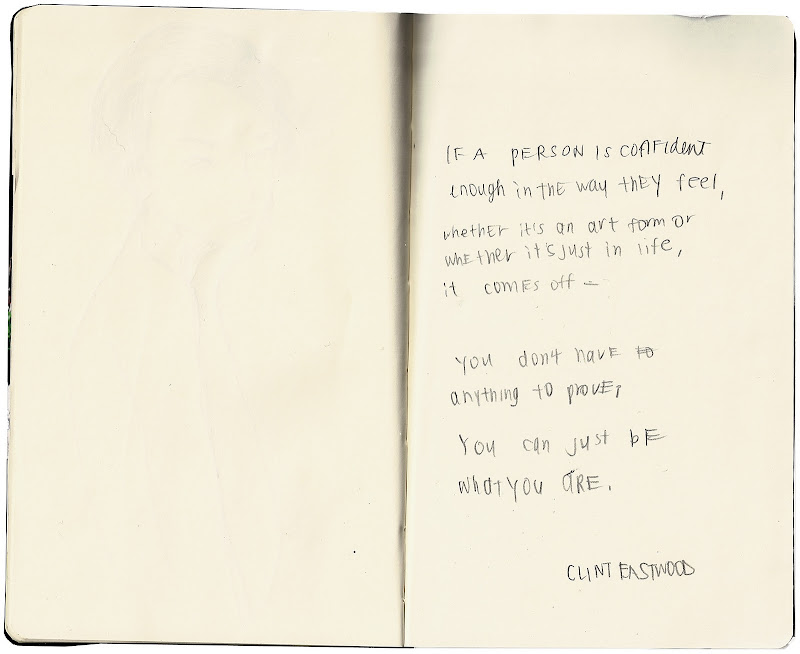 IF A PERSON IS CONFIdent
enough in the way thEY feel,
whether it's an art form or
whether it's just in life,
it comEs off –
You don't havE to
anything to provE;
You can just bE
what you ARE.
CLINT EASTWOOD